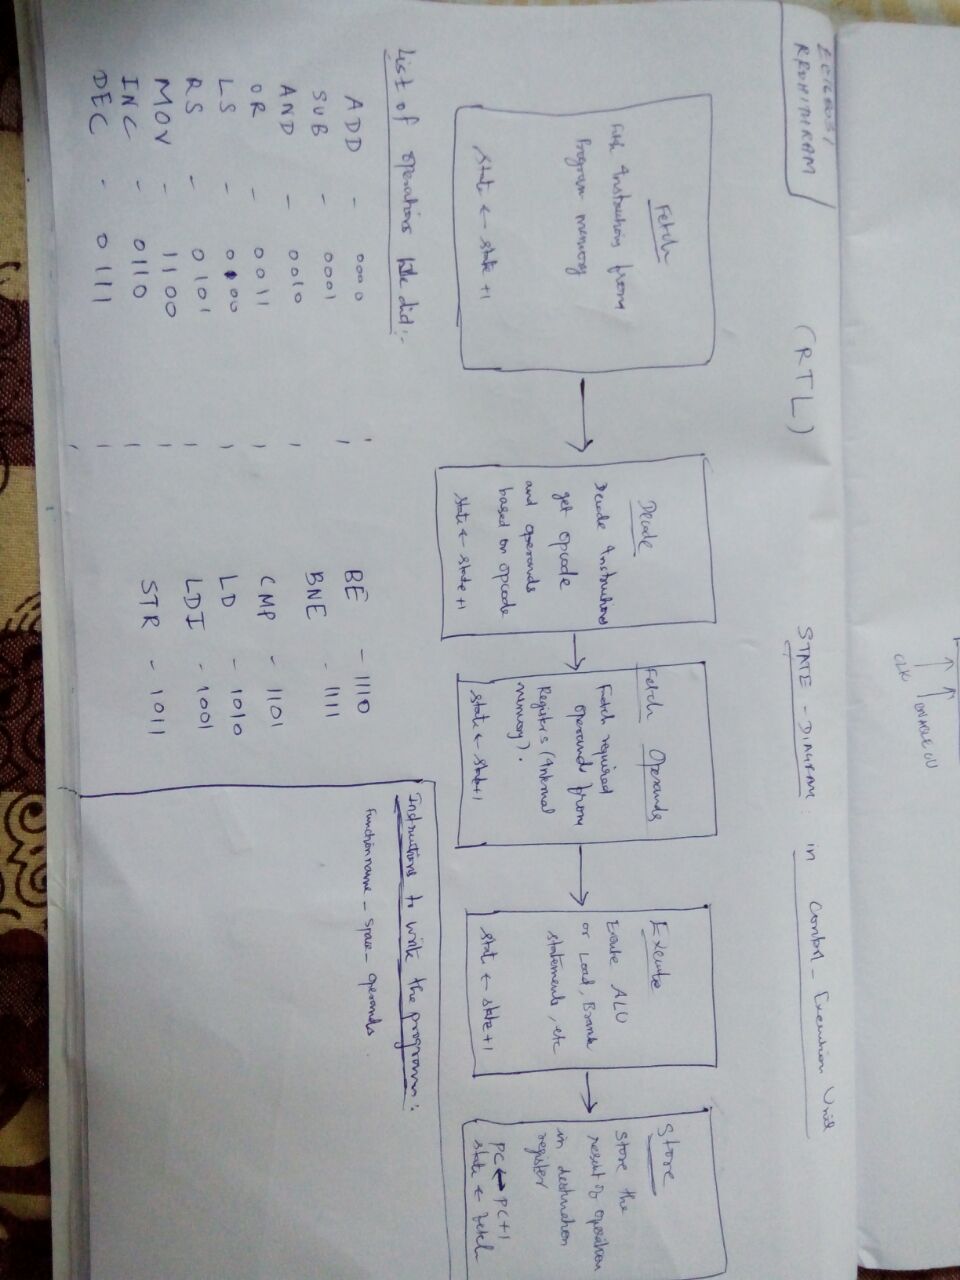 RROHITHRAM
(RTL)
STATE - DIAGRAM : in Control - Execution Unit
Fetch
Fetch Instruction from
Program memory
state ← state +1
Decode
Decode Instructions
get opcode
and operands
based on opcode
state ← state +1
Fetch Operands
Fetch required
operands from
Registers (Internal
memory).
state ← state+1
Execute
Exute ALU
or Load, Branch
statements, etc
state ← state+1
Store
Store the
result of operation
in destination
register
PC ↔ PC+1
state ← fetch
List of operations We did :-
ADD - 0000
SUB - 0001
AND - 0010
OR - 0011
LS - 0100
RS - 0101
MOV - 1100
INC - 0110
DEC - 0111
BE - 1110
BNE - 1111
CMP - 1101
LD - 1010
LDI - 1001
STR - 1011
Instructions to write the program :
Functionname - space - operands
CLK